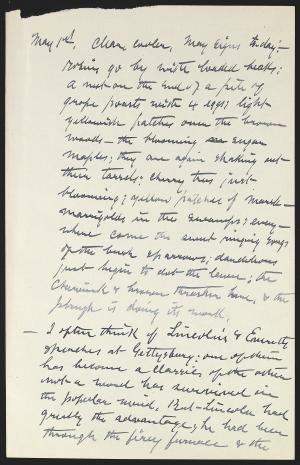 May 1st. Clear, cooler, May signs to-day:
robins go by with loaded beaks;
A nest on the end of a pile of
grape posts with 4 eggs; light
yellowish patches over the brown
woods — the blooming sugar
maples; they are again shaking out
their tassels; cherry trees just
blooming; yellow patches of marsh-
marigolds in the swamps; every-
where come the sweet ringing songs
of the bush sparrows; dandelions
just begin to dot the lawn; the
Chewink & brown thrasher here, & the
plough is doing its work.
— I often think of Lincoln's & Everett's
speeches at Gettysburg: one of them
has become a classic; of the other
not a word has survived in
the popular mind. But Lincoln had
greatly the advantage; he had been
through the fiery furnace & the